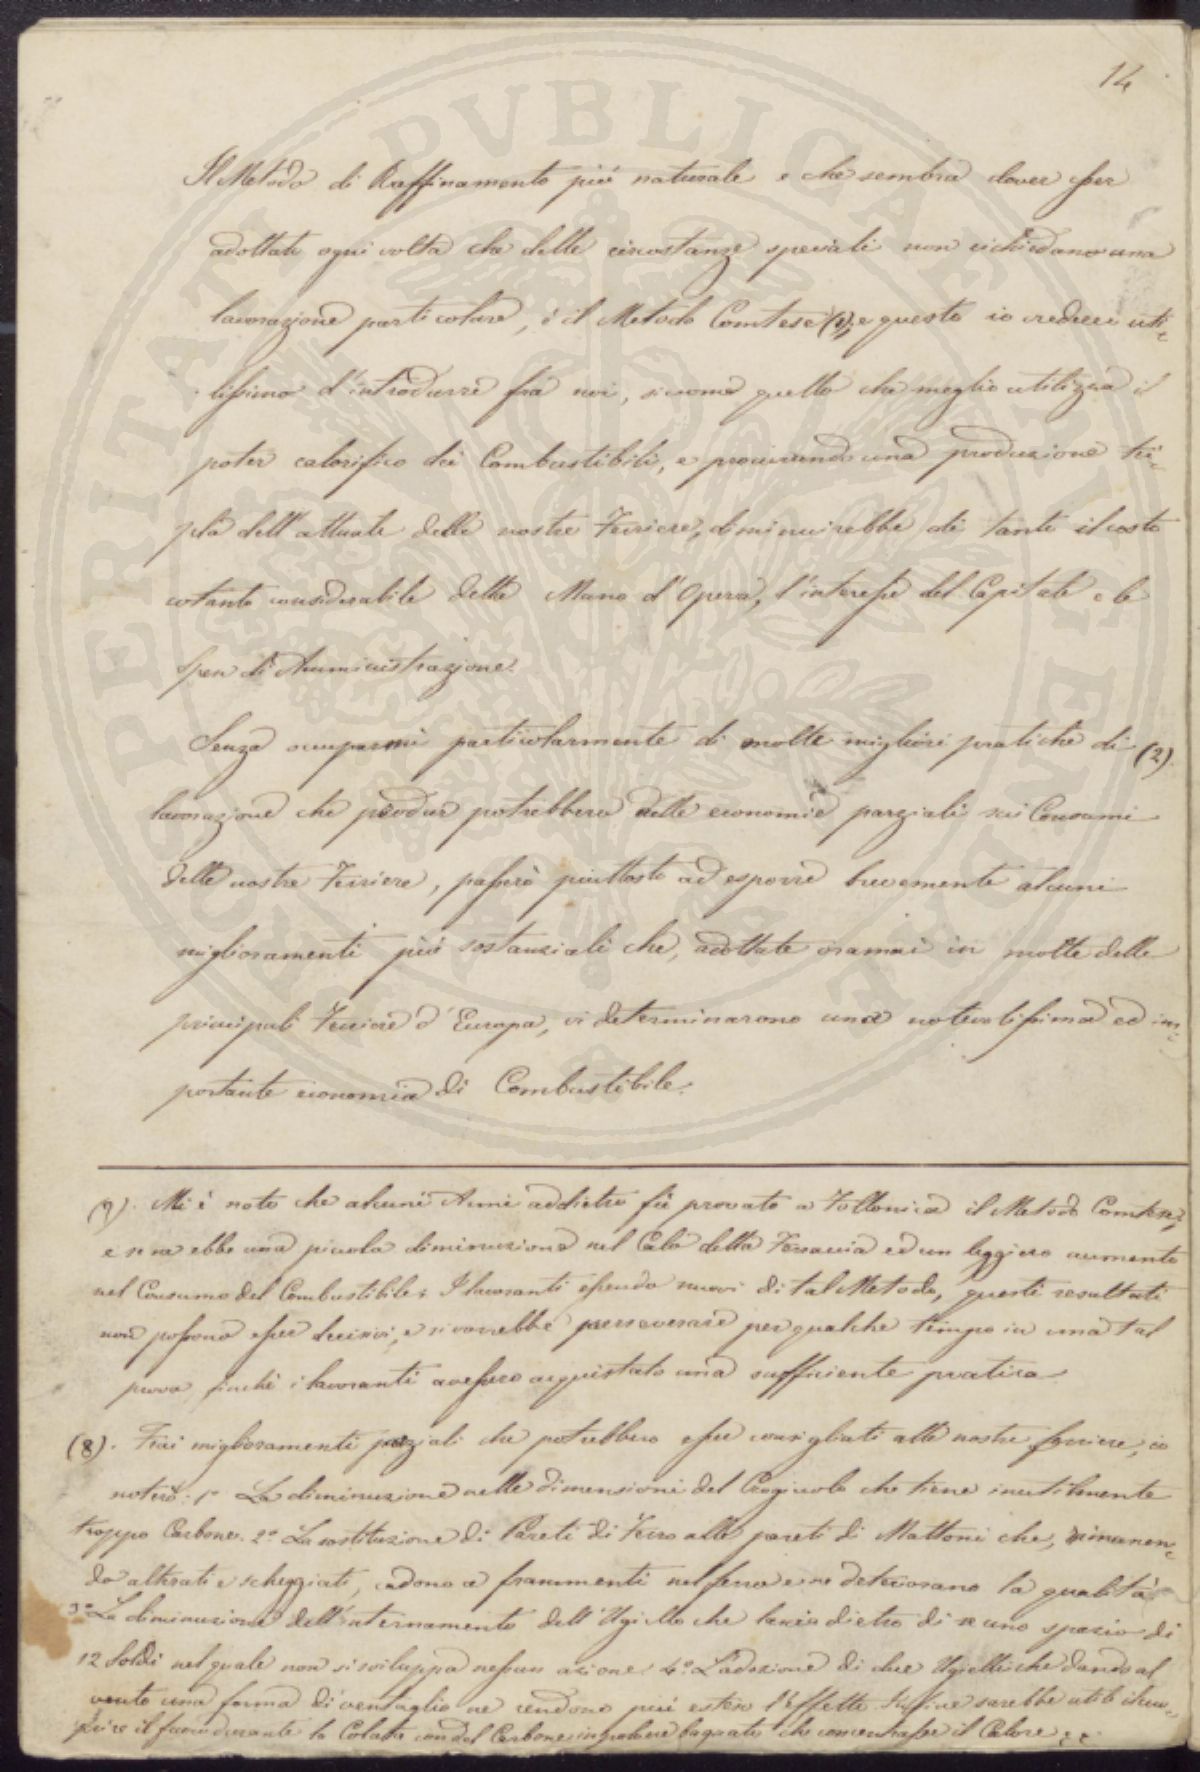 14
Il Metodo di Raffinamento più naturale e che sembra dover esser
adottato ogni volta che delle circostanze speciali non richiedano una
lavorazione particolare, è il Metodo Comtese (1), e questo io crederei uti-
lissimo d'introdurre fra noi, siccome quello che meglio utilizza il
poter calorifico dei Combustibili, e procurando una produzione tri-
pla dell'attuale delle nostre Ferriere, diminuirebbe di tanto il costo
cotanto considerabile della Mano d'Opera, l'interesse del Capitale e le
spese di Amministrazione.
Senza occuparmi particolarmente di molte migliori pratiche di (2)
lavorazione che produr potrebbero delle economie parziali sui Consumi
delle nostre Ferriere, passerò piuttosto ad esporre brevemente alcuni
miglioramenti più sostanziali che, adottate oramai in molte delle
principali Ferriere d'Europa, vi determinarono una notevolissima ed im-
portante economia di Combustibile.
(1). Mi è noto che alcuni Anni addietro fù provato a Follonica il Metodo Comtese,
e se ne ebbe una piccola diminuzione nel Calo della Ferraccia ed un leggiero aumento
nel Consumo del Combustibile. I lavoranti essendo nuovi di tal Metodo, questi resultati
non possono esser decisivi, e si vorrebbe perseverare per qualche tempo in una tal
prova finchè i lavoranti avessero acquistato una sufficiente pratica.
(8). Frai miglioramenti parziali che potrebbero esser consigliati alle nostre ferriere, io
noterò: 1º La diminuzione nelle dimensioni del Crogiuolo che tiene inutilmente
troppo Carbone. 2º La sostituzione di Pareti di Ferro alle pareti di Mattoni che, rimanen-
do alterati e scheggiati, cadono a frammenti nel ferro e ne deteriorano la qualità
3º La diminuzione dell'internamento dell'Ugello che lascia dietro di se uno spazio di
12 Soldi nel quale non si sviluppa nessun azione. 4º L'adozione di due Ugelli che dando al
vento una forma di ventaglio ne rendono più esteso l'effetto. Infine sarebbe utile il
il fuoco durante la Colatta con del Carbone in polvere bagnato che concentrasse il Calore